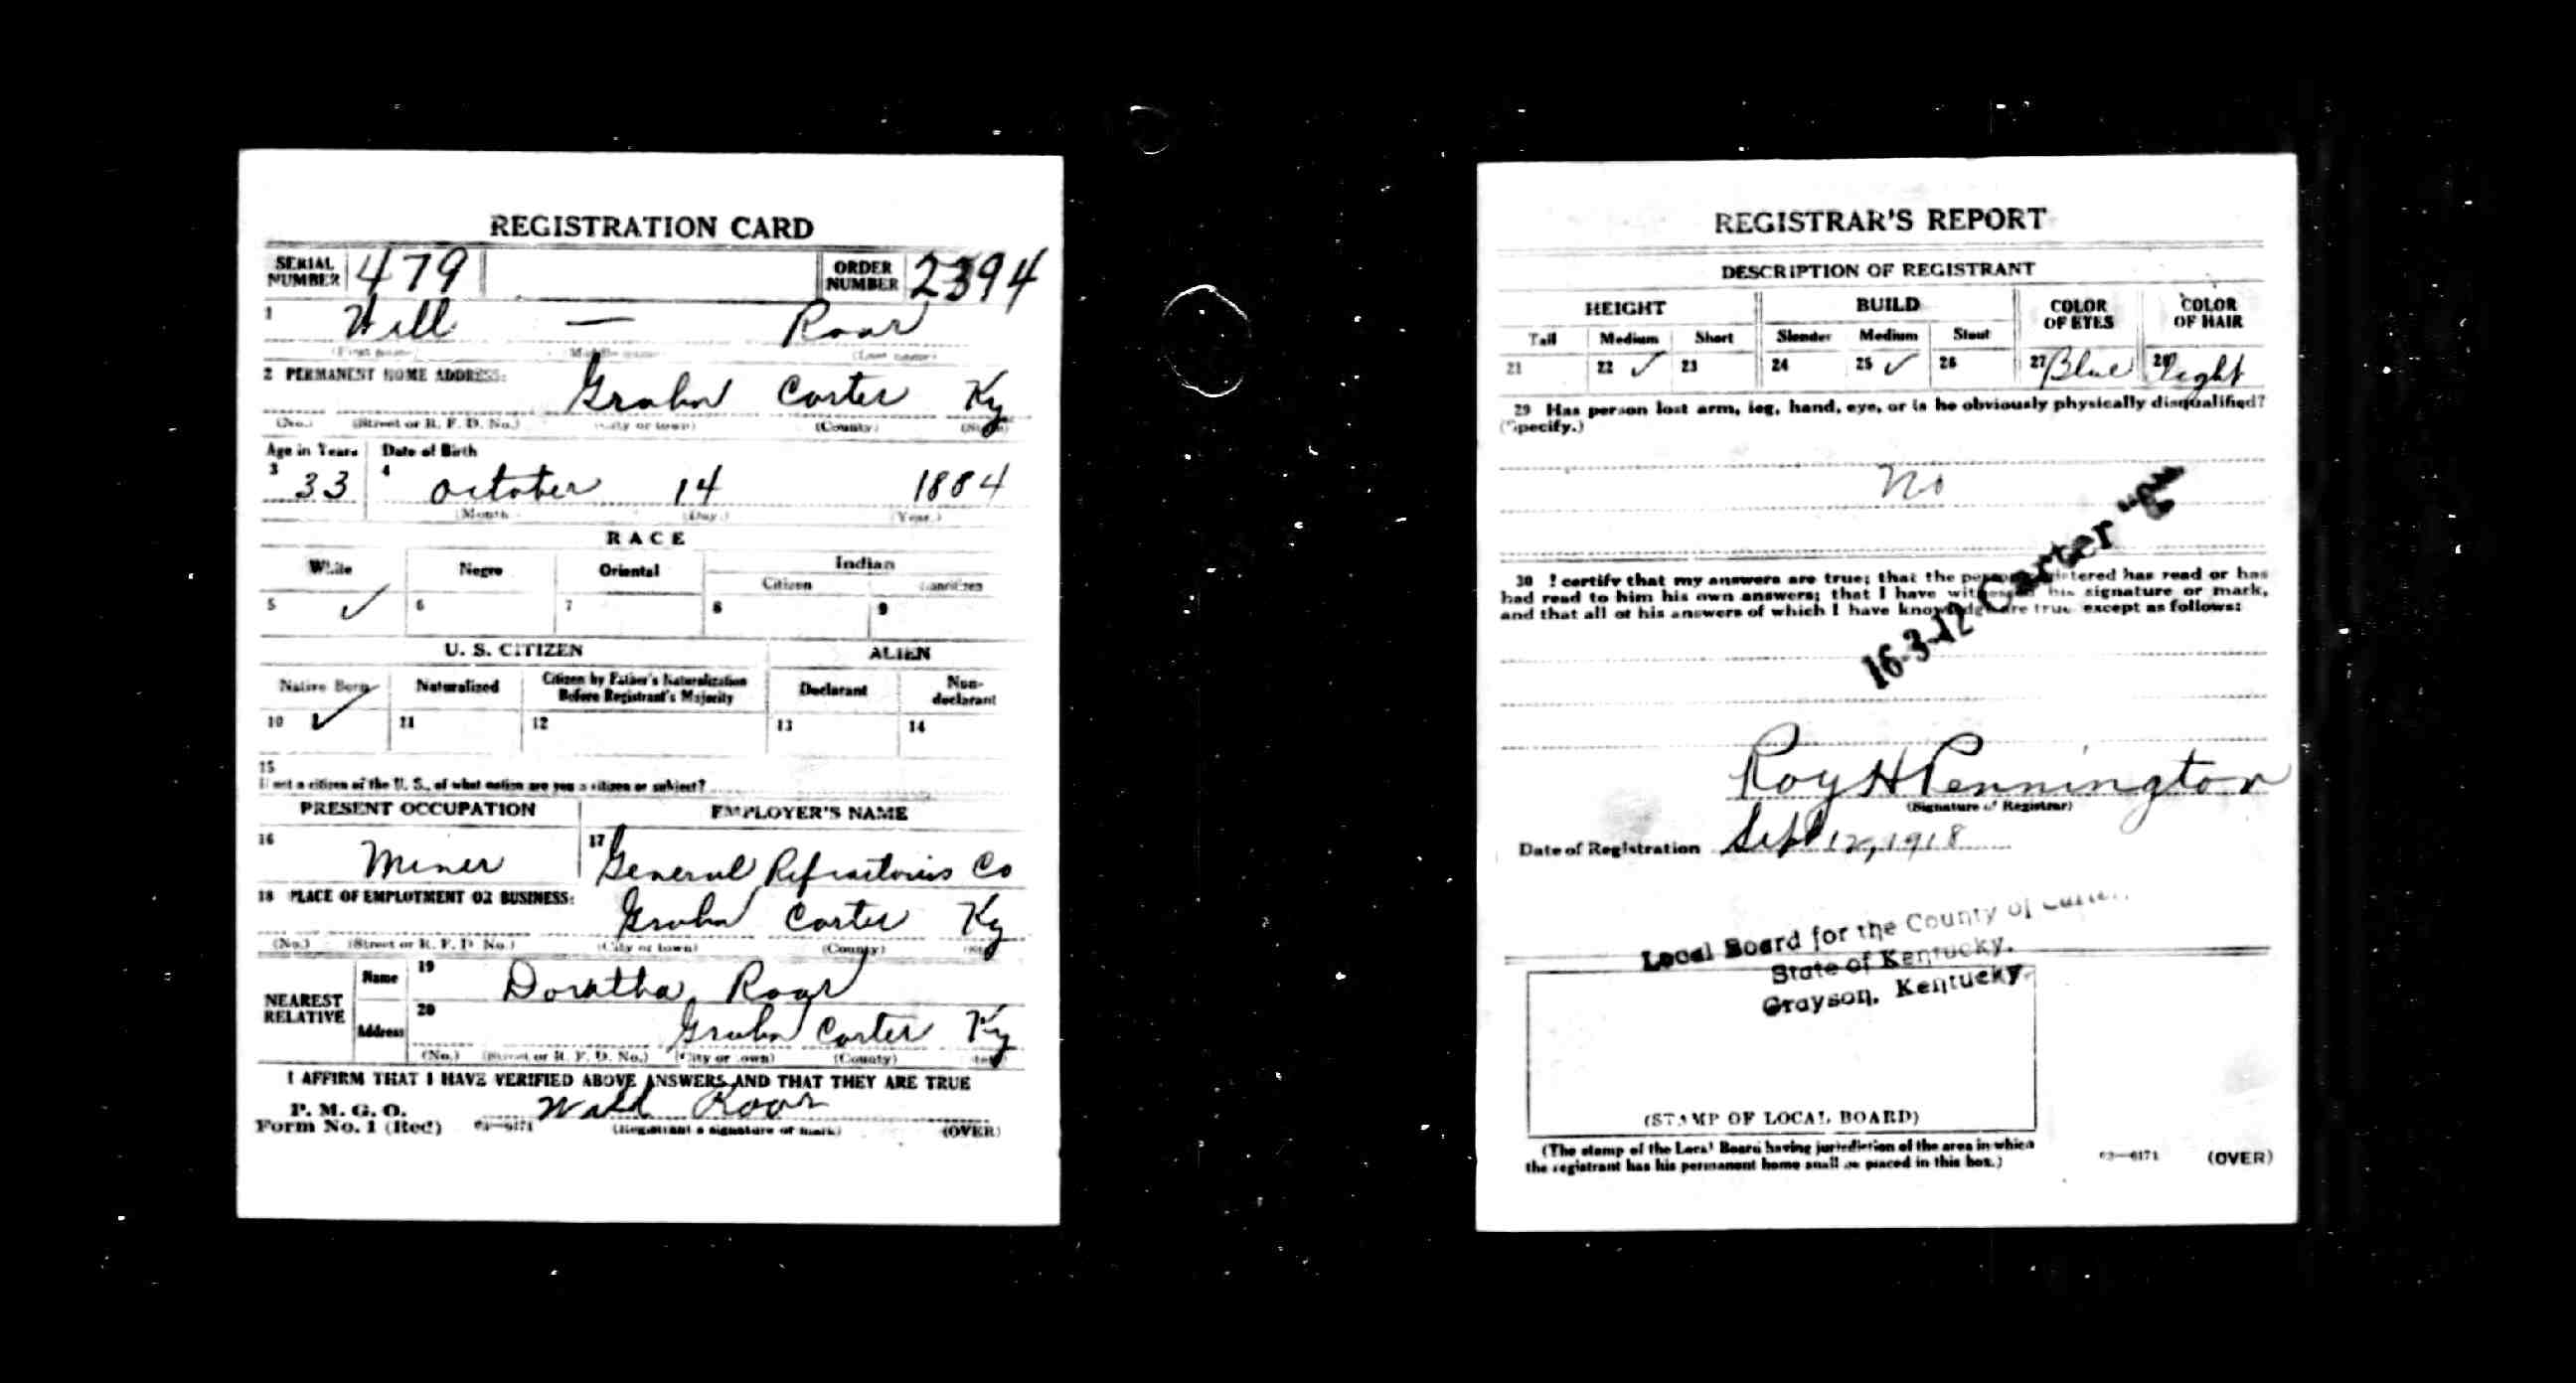 REGISTRATION CARD
SERIAL NUMBER 479 ORDER NUMBER 2394
1 Will — Roar
(First name) (Middle name) (Last name)
2 PERMANENT HOME ADDRESS:
Grahn Carter Ky
(No.) (Street or R. F. D. No.) (City or town) (County) (State)
Age in Years Date of Birth
3 33 4 October 14 1884
(Month) (Day) (Year)
RACE
White Negro Oriental Indian
Citizen Noncitizen
5 ✓ 6 7 8 9
U. S. CITIZEN ALIEN
Native Born Naturalized Citizen by Father's Naturalization Before Registrant's Majority Declarant Non-declarant
10 ✓ 11 12 13 14
15
If not a citizen of the U. S., of what nation are you a citizen or subject?
PRESENT OCCUPATION EMPLOYER'S NAME
16 Miner 17 General Refractories Co
18 PLACE OF EMPLOYMENT OR BUSINESS:
Grahn Carter Ky
(No.) (Street or R. F. D. No.) (City or town) (County)
NEAREST RELATIVE Name 19 Doratha Roar
Address 20 Grahn Carter Ky
(No.) (Street or R. F. D. No.) (City or town) (County) (State)
I AFFIRM THAT I HAVE VERIFIED ABOVE ANSWERS AND THAT THEY ARE TRUE
P. M. G. O.
Form No. 1 (Red) 03—6171 Will Roar
(Registrant's signature or mark) (OVER)
REGISTRAR'S REPORT
DESCRIPTION OF REGISTRANT
HEIGHT BUILD COLOR OF EYES COLOR OF HAIR
Tall Medium Short Slender Medium Stout
21 22 ✓ 23 24 25 ✓ 26 27 Blue 28 Light
29 Has person lost arm, leg, hand, eye, or is he obviously physically disqualified?
(Specify.)
No
30 I certify that my answers are true; that the person registered has read or has
had read to him his own answers; that I have witnessed his signature or mark,
and that all of his answers of which I have knowledge are true except as follows:
16-3-12 Carter
Roy H Pennington
(Signature of Registrar)
Date of Registration Sept 12, 1918
Local Board for the County of Carter,
State of Kentucky.
Grayson, Kentucky.
(STAMP OF LOCAL BOARD)
(The stamp of the Local Board having jurisdiction of the area in which
the registrant has his permanent home shall be placed in this box.)
03—6171 (OVER)